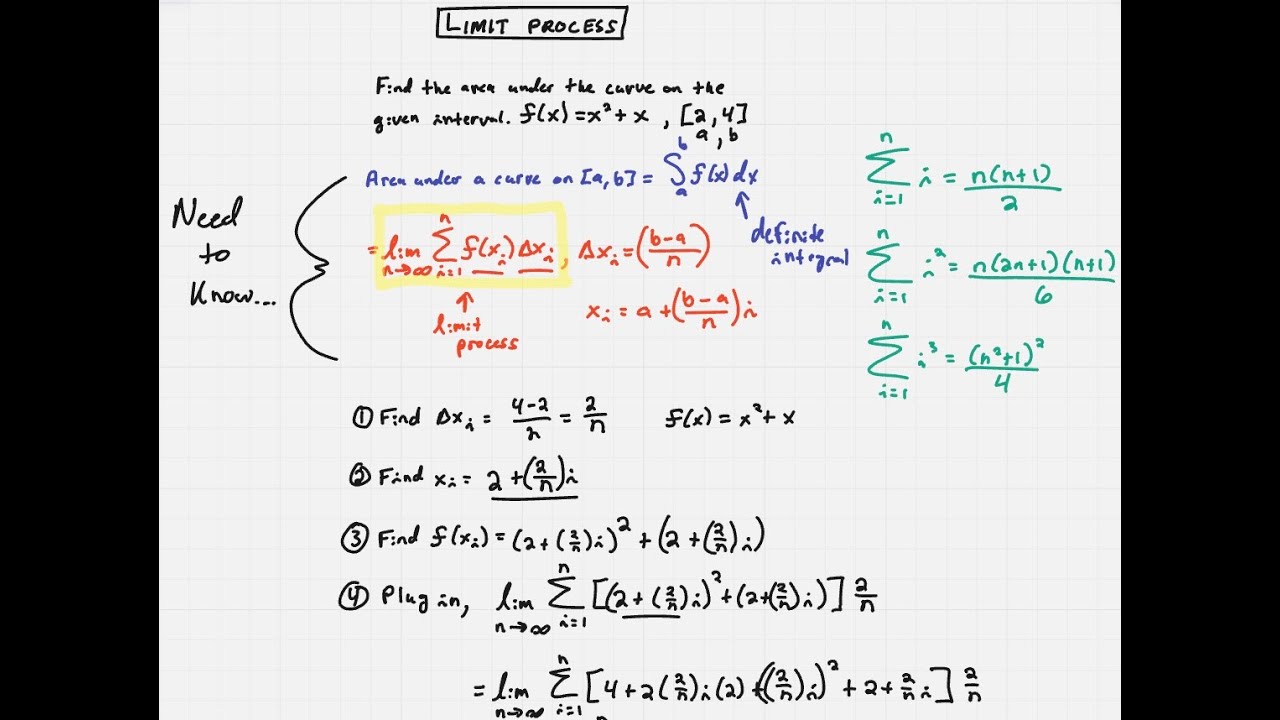 LIMIT PROCESS
Find the area under the curve on the
given interval. f(x) = x² + x , [2, 4]
a , b
Area under a curve on [a, b] = ∫ₐᵇ f(x) dx
Need
to
Know...
= lim n→∞ ∑ i=1 n f(xᵢ) Δxᵢ , Δxᵢ = (b-a/n)
definite
integral
↑
limit
process
xᵢ = a + (b-a/n)i
∑ i=1 n i = n(n+1)/2
∑ i=1 n i² = n(2n+1)(n+1)/6
∑ i=1 n i³ = (n²+1)²/4
① Find Δxᵢ = 4-2/n = 2/n f(x) = x² + x
② Find xᵢ = 2 + (2/n)i
③ Find f(xᵢ) = (2 + (2/n)i)² + (2 + (2/n)i)
④ Plug in, lim n→∞ ∑ i=1 n [(2 + (2/n)i)² + (2 + (2/n)i)] 2/n
= lim n→∞ ∑ i=1 n [4 + 2(2/n)i(2) + ((2/n)i)² + 2 + 2/n i] 2/n